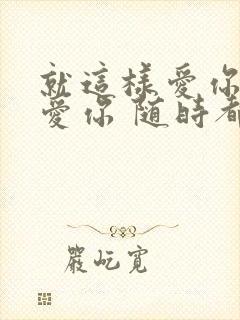 就這樣愛你
愛你 随時都
嚴屹寬